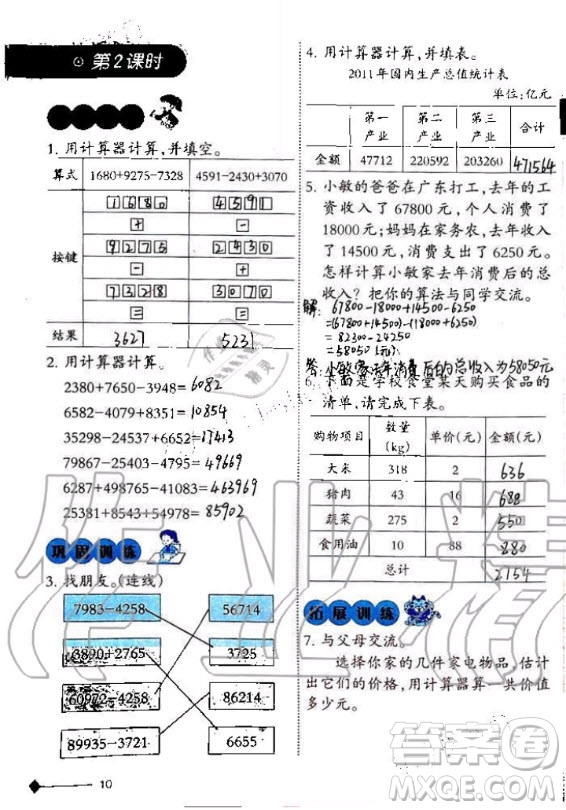 第2课时
1. 用计算器计算,并填空。
算式 1680+9275-7328 4591-2430+3070
按键 1680 4591
+ -
9275 2430
- +
7328 3070
= =
结果 3627 5231
2. 用计算器计算。
2380+7650-3948=6082
6582-4079+8351=10854
35298-24537+6652=17413
79867-25403-4795=49669
6287+498765-41083=463969
25381+8543+54978=85902
巩固训练
3. 找朋友。(连线)
7983-4258 56714
3890+2765 3725
60972-4258 86214
89935-3721 6655
10
4. 用计算器计算,并填表。
2011年国内生产总值统计表
单位:亿元
第一产业 第二产业 第三产业 合计
金额 47712 220592 203260 471564
5. 小敏的爸爸在广东打工,去年的工
资收入了 67800 元,个人消费了
18000元;妈妈在家务农,去年收入
了 14500 元,消费支出了 6250元。
怎样计算小敏家去年消费后的总
收入?把你的算法与同学交流。
解: 67800-18000+14500-6250
=(67800+14500)-(18000+6250)
=82300-24250
=58050(元)
答:小敏家去年消费后的总收入为58050元
6. 下面是学校食堂某天购买食品的
清单,请完成下表。
购物项目 数量(kg) 单价(元) 金额(元)
大米 318 2 636
猪肉 43 16 688
蔬菜 275 2 550
食用油 10 88 880
总计 2154
拓展训练
7. 与父母交流。
选择你家的几件家电物品,估计
出它们的价格,用计算器算一共价值
多少元。
作业精灵
答案圈
MXQE.COM